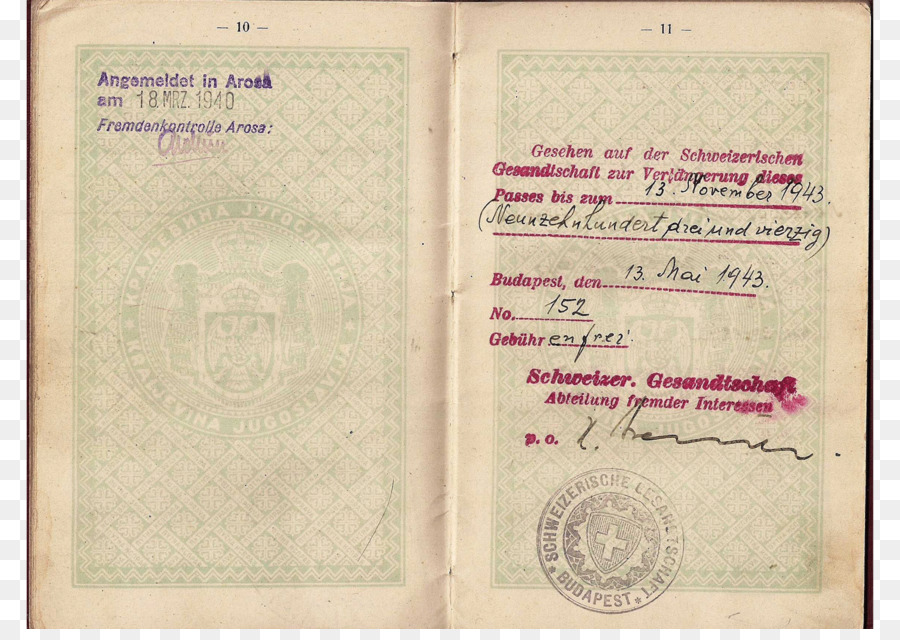 — 10 —
Angemeldet in Arosa
am 18. MRZ. 1940
Fremdenkontrolle Arosa:
КРАЉЕВИНА ЈУГОСЛАВИЈА
KRALJEVINA JUGOSLAVIJA
— 11 —
Gesehen auf der Schweizerischen
Gesandtschaft zur Verlängerung dieses
Passes bis zum 13. November 1943.
(Neunzehnhundert drei und vierzig)
Budapest, den 13. Mai 1943.
No. 152
Gebührenfrei.
Schweizer. Gesandtschaft
Abteilung fremder Interessen
p. o.
SCHWEIZERISCHE GESANDTSCHAFT
* BUDAPEST *